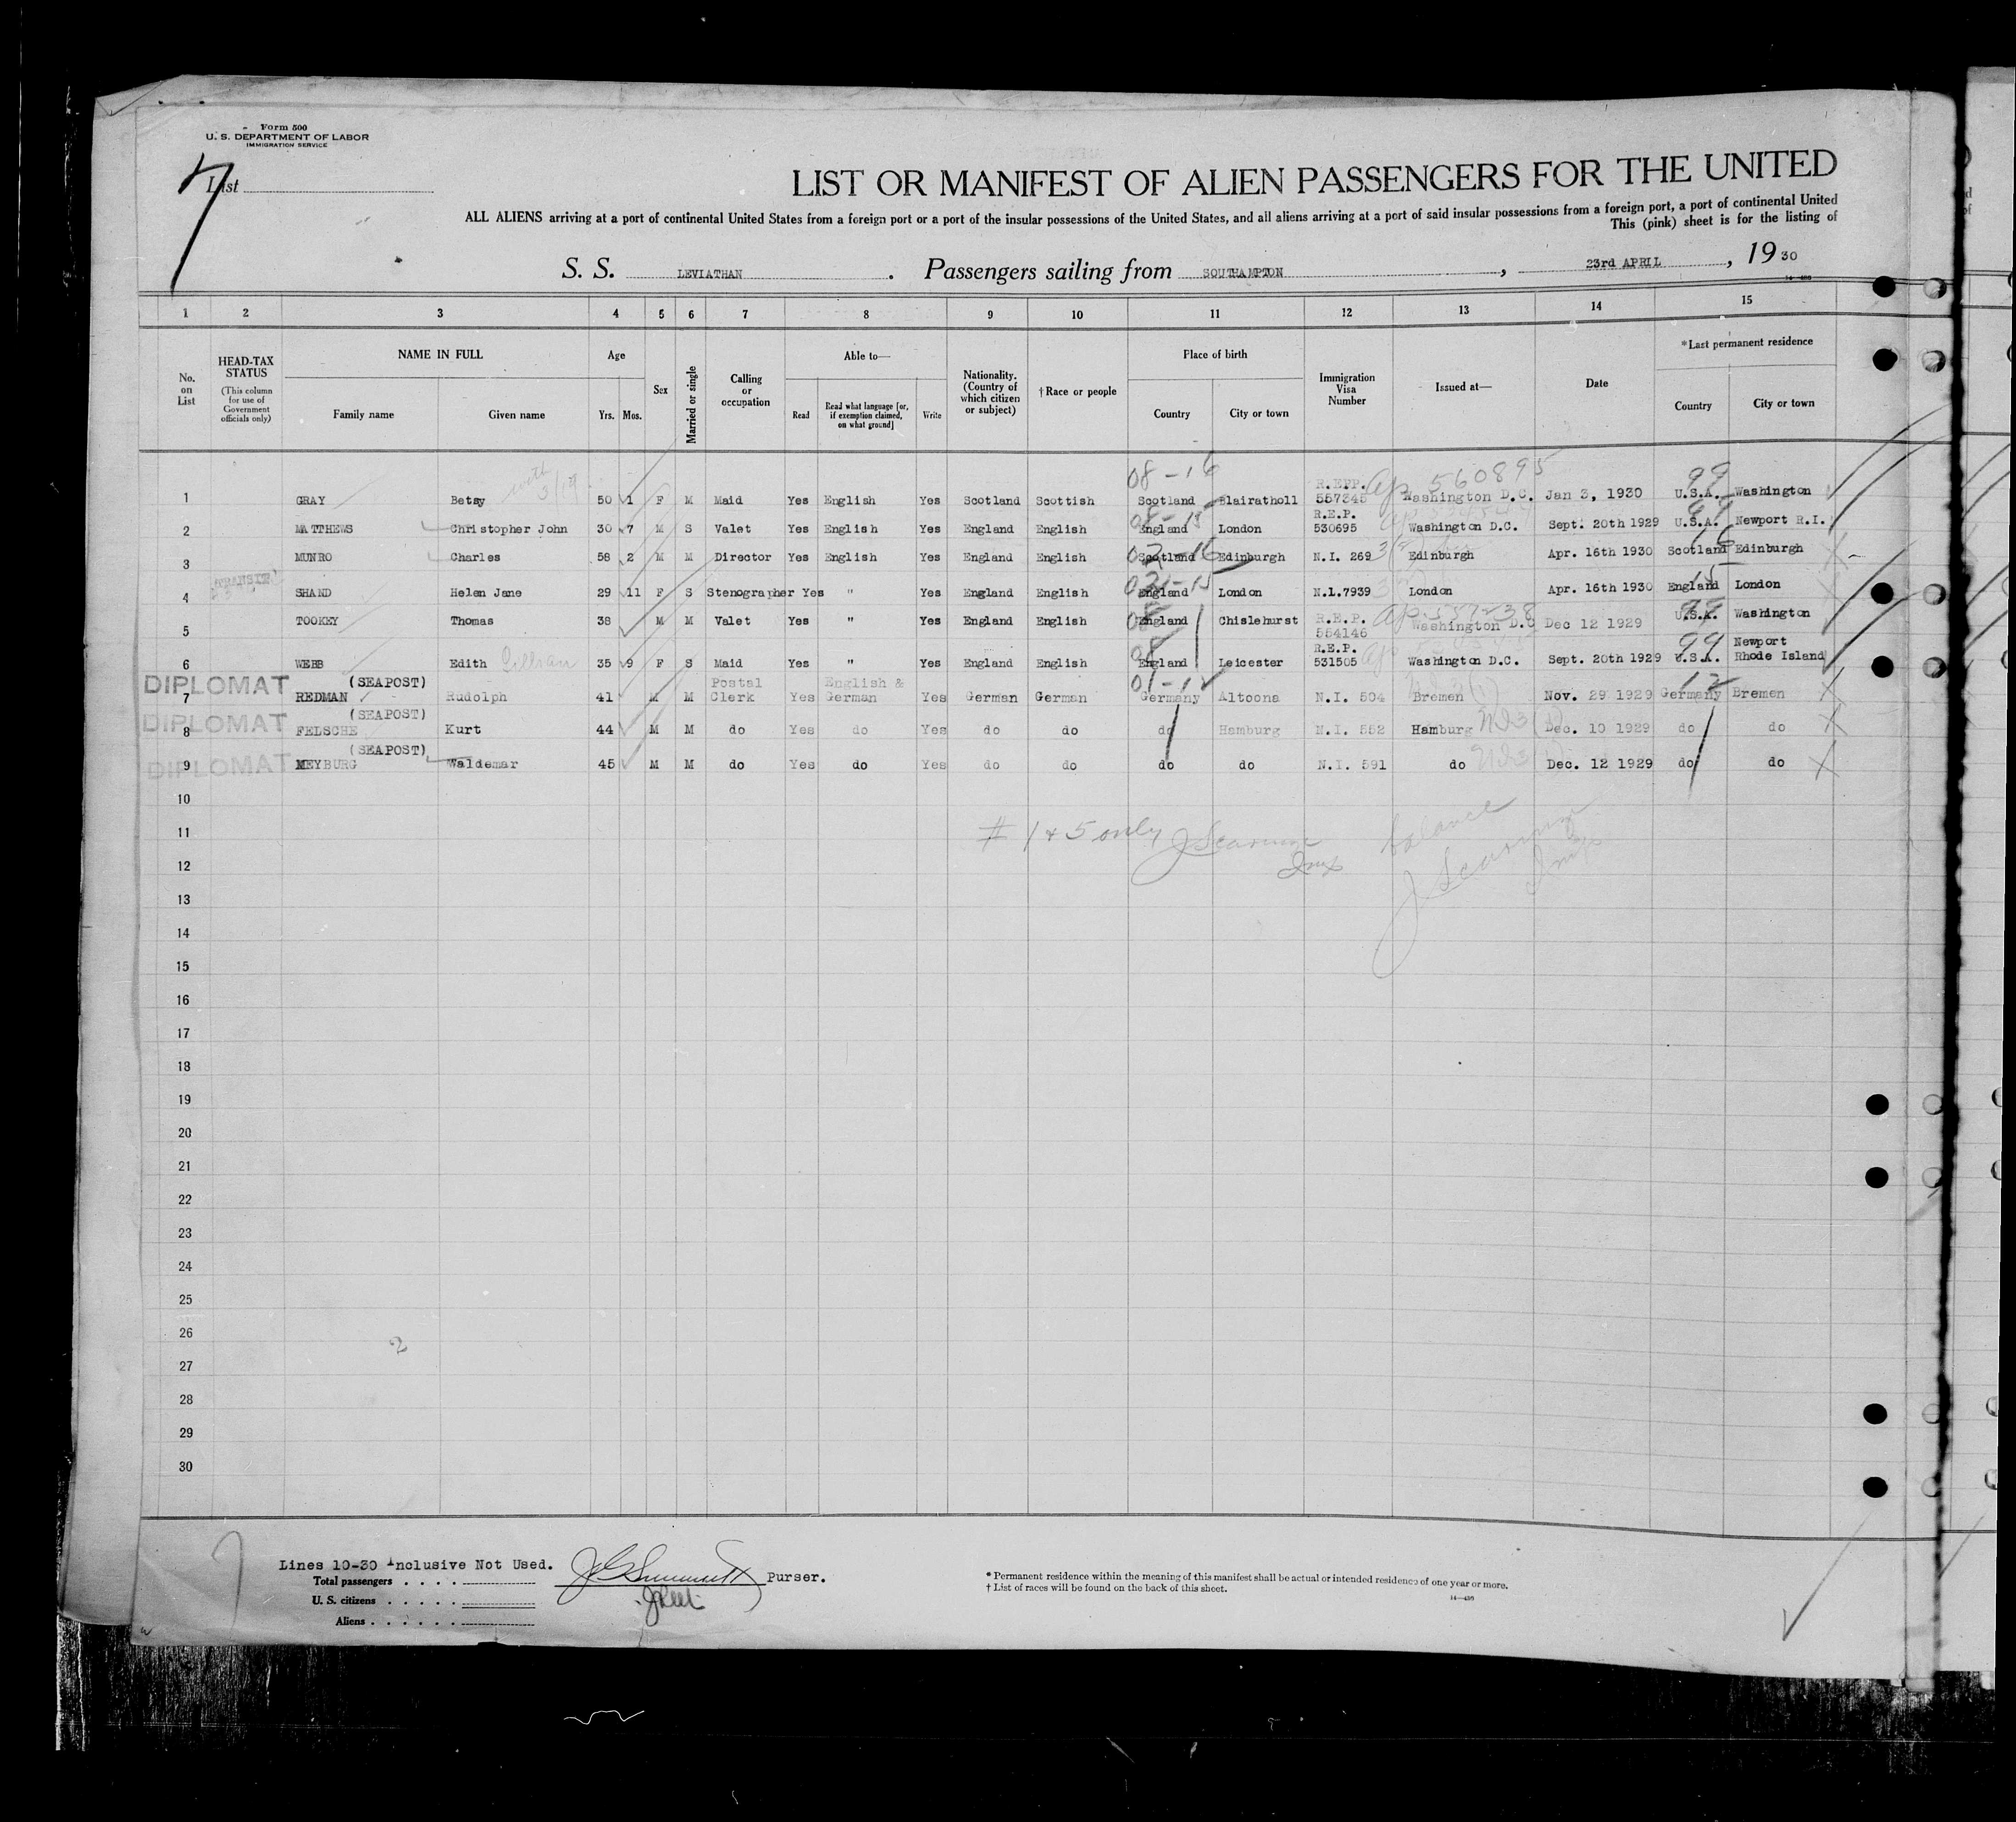 Form 500
U. S. DEPARTMENT OF LABOR
IMMIGRATION SERVICE
List
7
LIST OR MANIFEST OF ALIEN PASSENGERS FOR THE UNITED
ALL ALIENS arriving at a port of continental United States from a foreign port or a port of the insular possessions of the United States, and all aliens arriving at a port of said insular possessions from a foreign port, a port of continental United
This (pink) sheet is for the listing of
S. S. LEVIATHAN. Passengers sailing from SOUTHAMPTON, 23rd APRIL, 1930
1 2 3 4 5 6 7 8 9 10 11 12 13 14 15
No. on List
HEAD-TAX STATUS (This column for use of Government officials only)
NAME IN FULL Family name Given name
Age Yrs. Mos.
Sex
Married or single
Calling or occupation
Able to— Read Read what language [or, if exemption claimed, on what ground] Write
Nationality. (Country of which citizen or subject)
†Race or people
Place of birth Country City or town
Immigration Visa Number
Issued at—
Date
*Last permanent residence Country City or town
08-16 ap 560895 99
1 GRAY Betsy 50 1 F M Maid Yes English Yes Scotland Scottish Scotland Blairatholl R.EPP. 557345 Washington D.C. Jan 3, 1930 U.S.A. Washington
2 MATTHEWS Christopher John 30 7 M S Valet Yes English Yes England English England London R.E.P. 530695 Washington D.C. Sept. 20th 1929 U.S.A. Newport R.I.
3 MUNRO Charles 58 2 M M Director Yes English Yes England English Scotland Edinburgh N.I. 269 Edinburgh Apr. 16th 1930 Scotland Edinburgh
TRANSIT
4 SHAND Helen Jane 29 11 F S Stenographer Yes " Yes England English England London N.I.7939 London Apr. 16th 1930 England London
5 TOOKEY Thomas 38 M M Valet Yes " Yes England English England Chislehurst R.E.P. 554146 Washington D.C Dec 12 1929 U.S.A. Washington
6 WEBB Edith Lillian 35 9 F S Maid Yes " Yes England English England Leicester R.E.P. 531505 Washington D.C. Sept. 20th 1929 U.S.A. Newport Rhode Island
DIPLOMAT (SEAPOST)
7 REDMAN Rudolph 41 M M Postal Clerk Yes English & German Yes German German Germany Altoona N.I. 504 Bremen Nov. 29 1929 Germany Bremen
DIPLOMAT (SEAPOST)
8 FELSCHE Kurt 44 M M do Yes do Yes do do do Hamburg N.I. 552 Hamburg Dec. 10 1929 do do
DIPLOMAT (SEAPOST)
9 MEYBURG Waldemar 45 M M do Yes do Yes do do do do N.I. 591 do Dec. 12 1929 do do
10
11 # 1 & 5 only balance
12
13
14
15
16
17
18
19
20
21
22
23
24
25
26
2
27
28
29
30
Lines 10-30 Inclusive Not Used.
Purser.
Total passengers
U. S. citizens
Aliens
* Permanent residence within the meaning of this manifest shall be actual or intended residence of one year or more.
† List of races will be found on the back of this sheet.